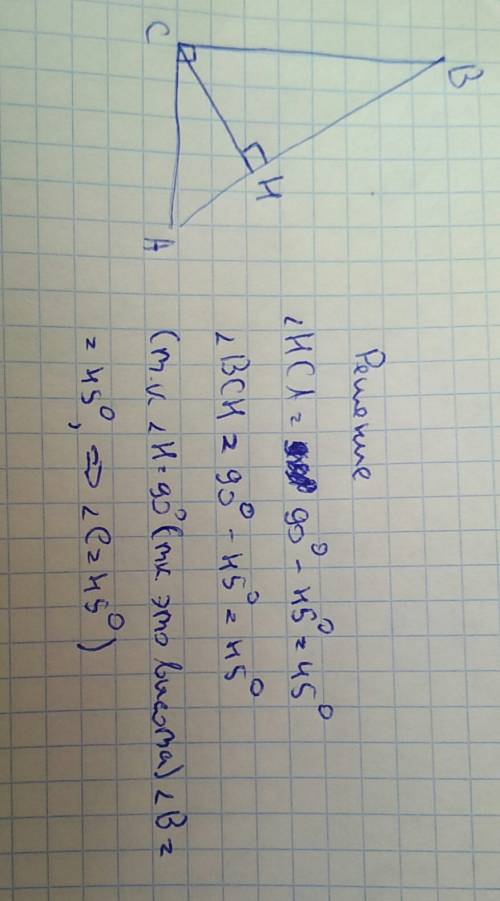 C
B
H
A
Решение
∠HCA = 90° - 45° = 45°
∠BCH = 90° - 45° = 45°
(т.к ∠H = 90° (тк это высота) ∠B =
= 45°, ⇒ ∠C = 45°)